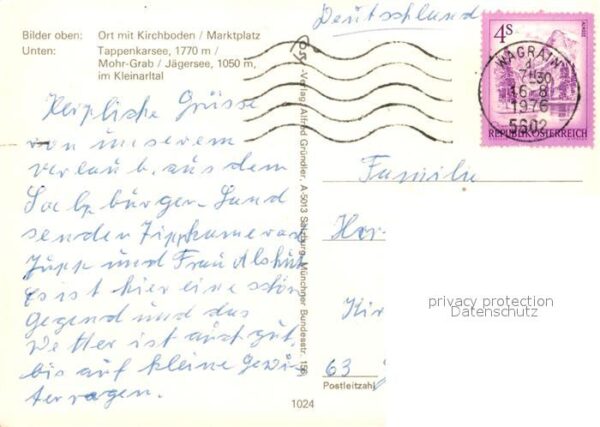 Bilder oben: Ort mit Kirchboden / Marktplatz
Unten: Tappenkarsee, 1770 m /
Mohr-Grab / Jägersee, 1050 m,
im Kleinarltal
Deutschland
4S
REPUBLIK ÖSTERREICH
WAGRAIN
16.-8.
1976
5602
Herzliche Grüsse
von unserem
verlaub. aus dem
Salzburger-Land
senden Zippkamerad
Jupp und Frau
Es ist hier eine schön
Gegend und das
Wetter ist auch gut,
bis auf kleine gewit
terragen.
-Verlag Alfred Gründler, A-5013 Salzburg, Münchner Bundesstr. 156
Familie
Her
Kir
63
Postleitzahl
1024
privacy protection
Datenschutz